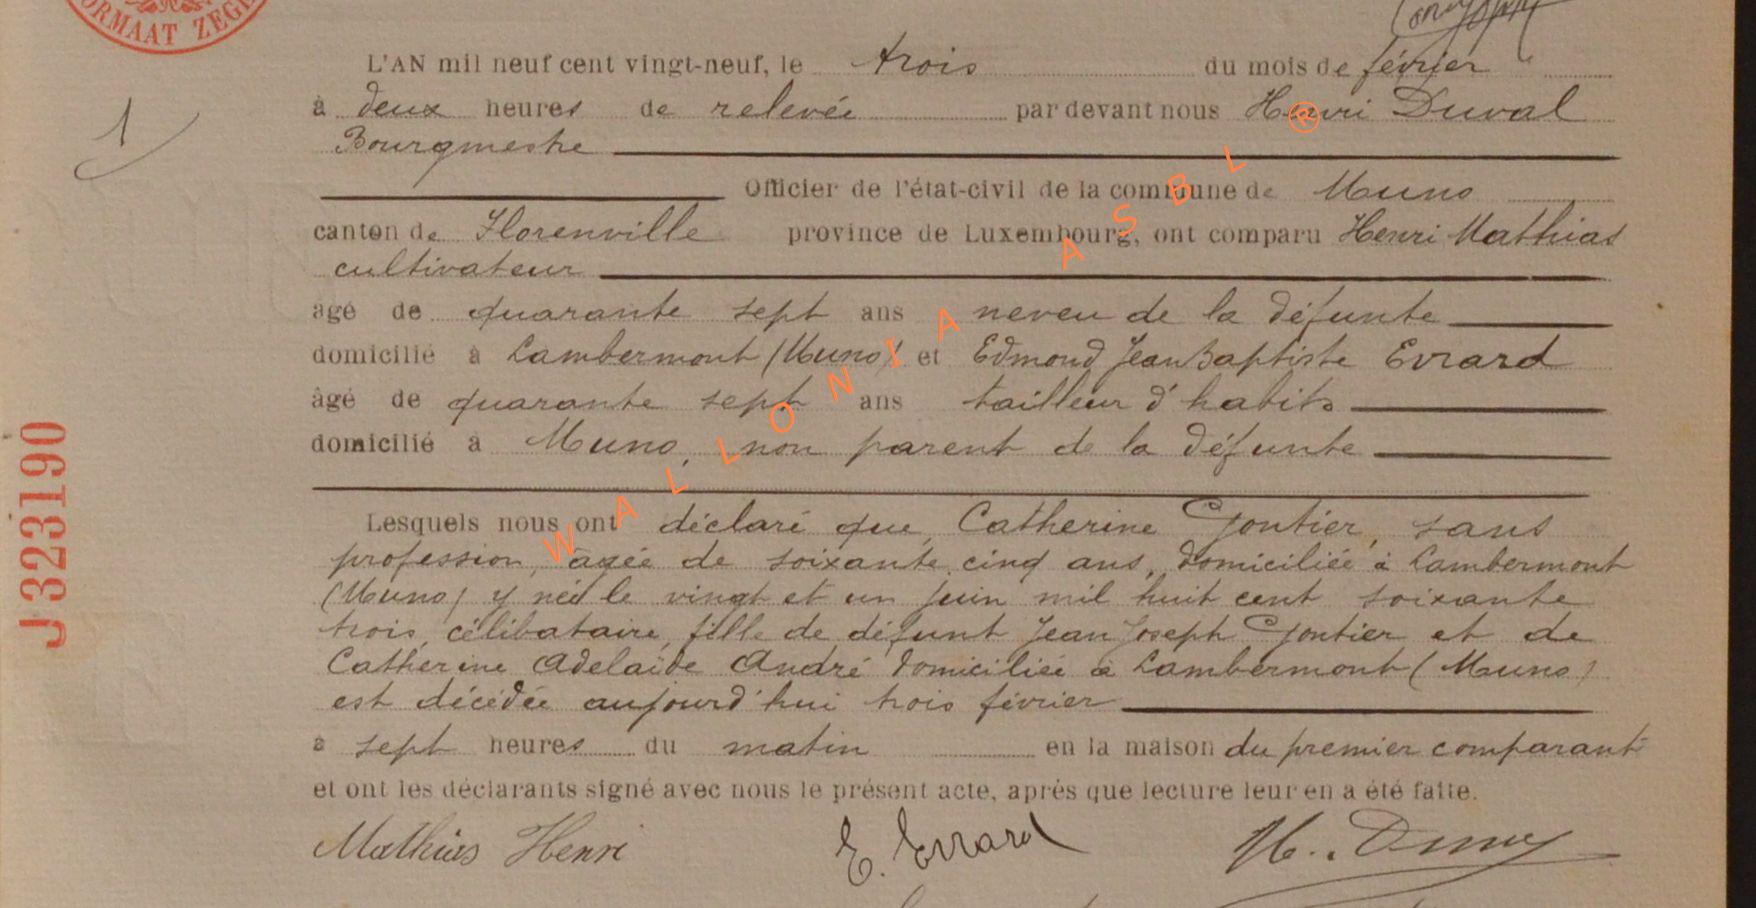 ORMAAT ZEGE
L'AN mil neuf cent vingt-neuf, le trois du mois de février
1
à deux heures de relevée par devant nous Henri Duval
Bourgmestre
Officier de l'état-civil de la commune de Muno
canton de Florenville province de Luxembourg, ont comparu Henri Mathias
cultivateur
agé de quarante sept ans neveu de la défunte
domicilié à Lambermont (Muno) et Edmond Jean Baptiste Evrard
âgé de quarante sept ans tailleur d'habits
domicilié à Muno, non parent de la défunte
Lesquels nous ont déclaré que, Catherine Gontier, sans
profession, âgée de soixante cinq ans, domiciliée à Lambermont
(Muno) y née le vingt et un juin mil huit cent soixante
trois, célibataire, fille de défunt Jean Joseph Gontier et de
Catherine Adelaïde André domiciliée à Lambermont (Muno)
est décédée aujourd'hui trois février
à sept heures du matin en la maison du premier comparant
et ont les déclarants signé avec nous le présent acte, après que lecture leur en a été faite.
Mathias Henri E. Evrard H. Duval
J323190
WALLONIA ASBL ®